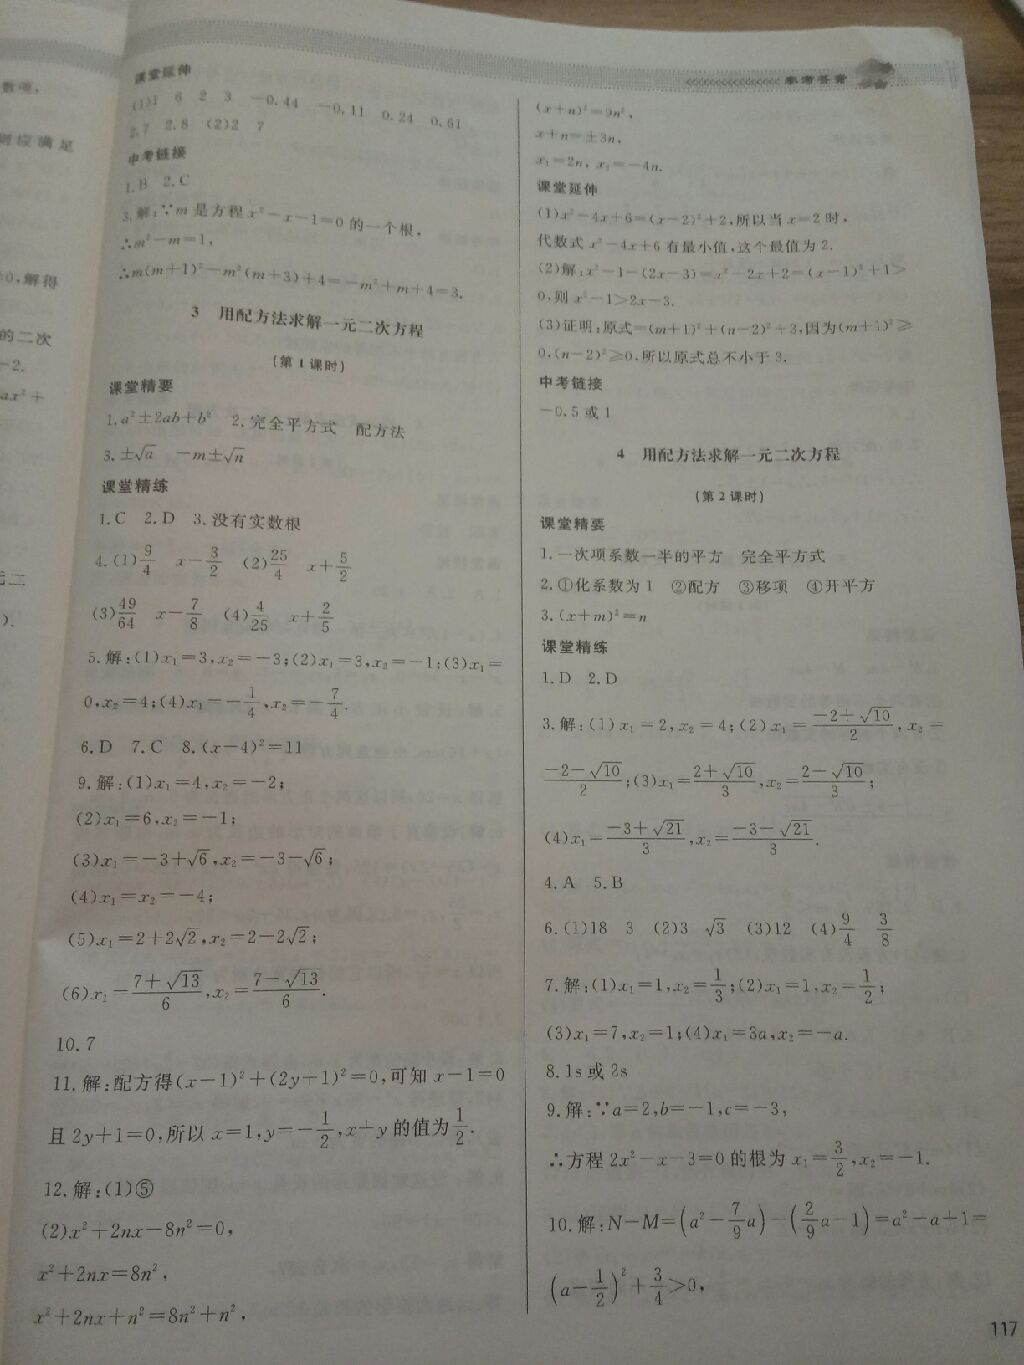 参考答案
数项,
则应满足
0,解得
的二次
-2.
ax²+
元二
).
课堂延伸
(1)1 6 2 3 -0.44 -0.11 0.24 0.61
2.7 2.8 (2)2 7
中考链接
1.B 2.C
3.解:∵m是方程x²-x-1=0的一个根,
∴m²-m=1,
∴m(m+1)²-m²(m+3)+4=-m²+m+4=3.
3 用配方法求解一元二次方程
(第1课时)
课堂精要
1.a²±2ab+b² 2.完全平方式 配方法
3.±√a -m±√n
课堂精练
1.C 2.D 3.没有实数根
4.(1)9/4 x-3/2 (2)25/4 x+5/2
(3)49/64 x-7/8 (4)4/25 x+2/5
5.解:(1)x₁=3,x₂=-3;(2)x₁=3,x₂=-1;(3)x₁=
0,x₂=4;(4)x₁=-1/4,x₂=-7/4.
6.D 7.C 8.(x-4)²=11
9.解:(1)x₁=4,x₂=-2;
(2)x₁=6,x₂=-1;
(3)x₁=-3+√6,x₂=-3-√6;
(4)x₁=x₂=-4;
(5)x₁=2+2√2,x₂=2-2√2;
(6)x₁=(7+√13)/6,x₂=(7-√13)/6.
10.7
11.解:配方得(x-1)²+(2y+1)²=0,可知x-1=0
且2y+1=0,所以x=1,y=-1/2,x+y的值为1/2.
12.解:(1)⑤
(2)x²+2nx-8n²=0,
x²+2nx=8n²,
x²+2nx+n²=8n²+n²,
(x+n)²=9n²,
x+n=±3n,
x₁=2n,x₂=-4n.
课堂延伸
(1)x²-4x+6=(x-2)²+2,所以当x=2时,
代数式x²-4x+6有最小值,这个最值为2.
(2)解:x²-1-(2x-3)=x²-2x+2=(x-1)²+1>
0,则x²-1>2x-3.
(3)证明:原式=(m+1)²+(n-2)²+3,因为(m+1)²≥
0,(n-2)²≥0,所以原式总不小于3.
中考链接
-0.5或1
4 用配方法求解一元二次方程
(第2课时)
课堂精要
1.一次项系数一半的平方 完全平方式
2.①化系数为1 ②配方 ③移项 ④开平方
3.(x+m)²=n
课堂精练
1.D 2.D
3.解:(1)x₁=2,x₂=4;(2)x₁=(-2+√10)/2,x₂=
(-2-√10)/2;(3)x₁=(2+√10)/3,x₂=(2-√10)/3;
(4)x₁=(-3+√21)/3,x₂=(-3-√21)/3.
4.A 5.B
6.(1)18 3 (2)3 √3 (3)12 (4)9/4 3/8
7.解:(1)x₁=1,x₂=1/3;(2)x₁=1,x₂=1/2;
(3)x₁=7,x₂=1;(4)x₁=3a,x₂=-a.
8.1s或2s
9.解:∵a=2,b=-1,c=-3,
∴方程2x²-x-3=0的根为x₁=3/2,x₂=-1.
10.解:N-M=(a²-7/9a)-(2/9a-1)=a²-a+1=
(a-1/2)²+3/4>0,
117